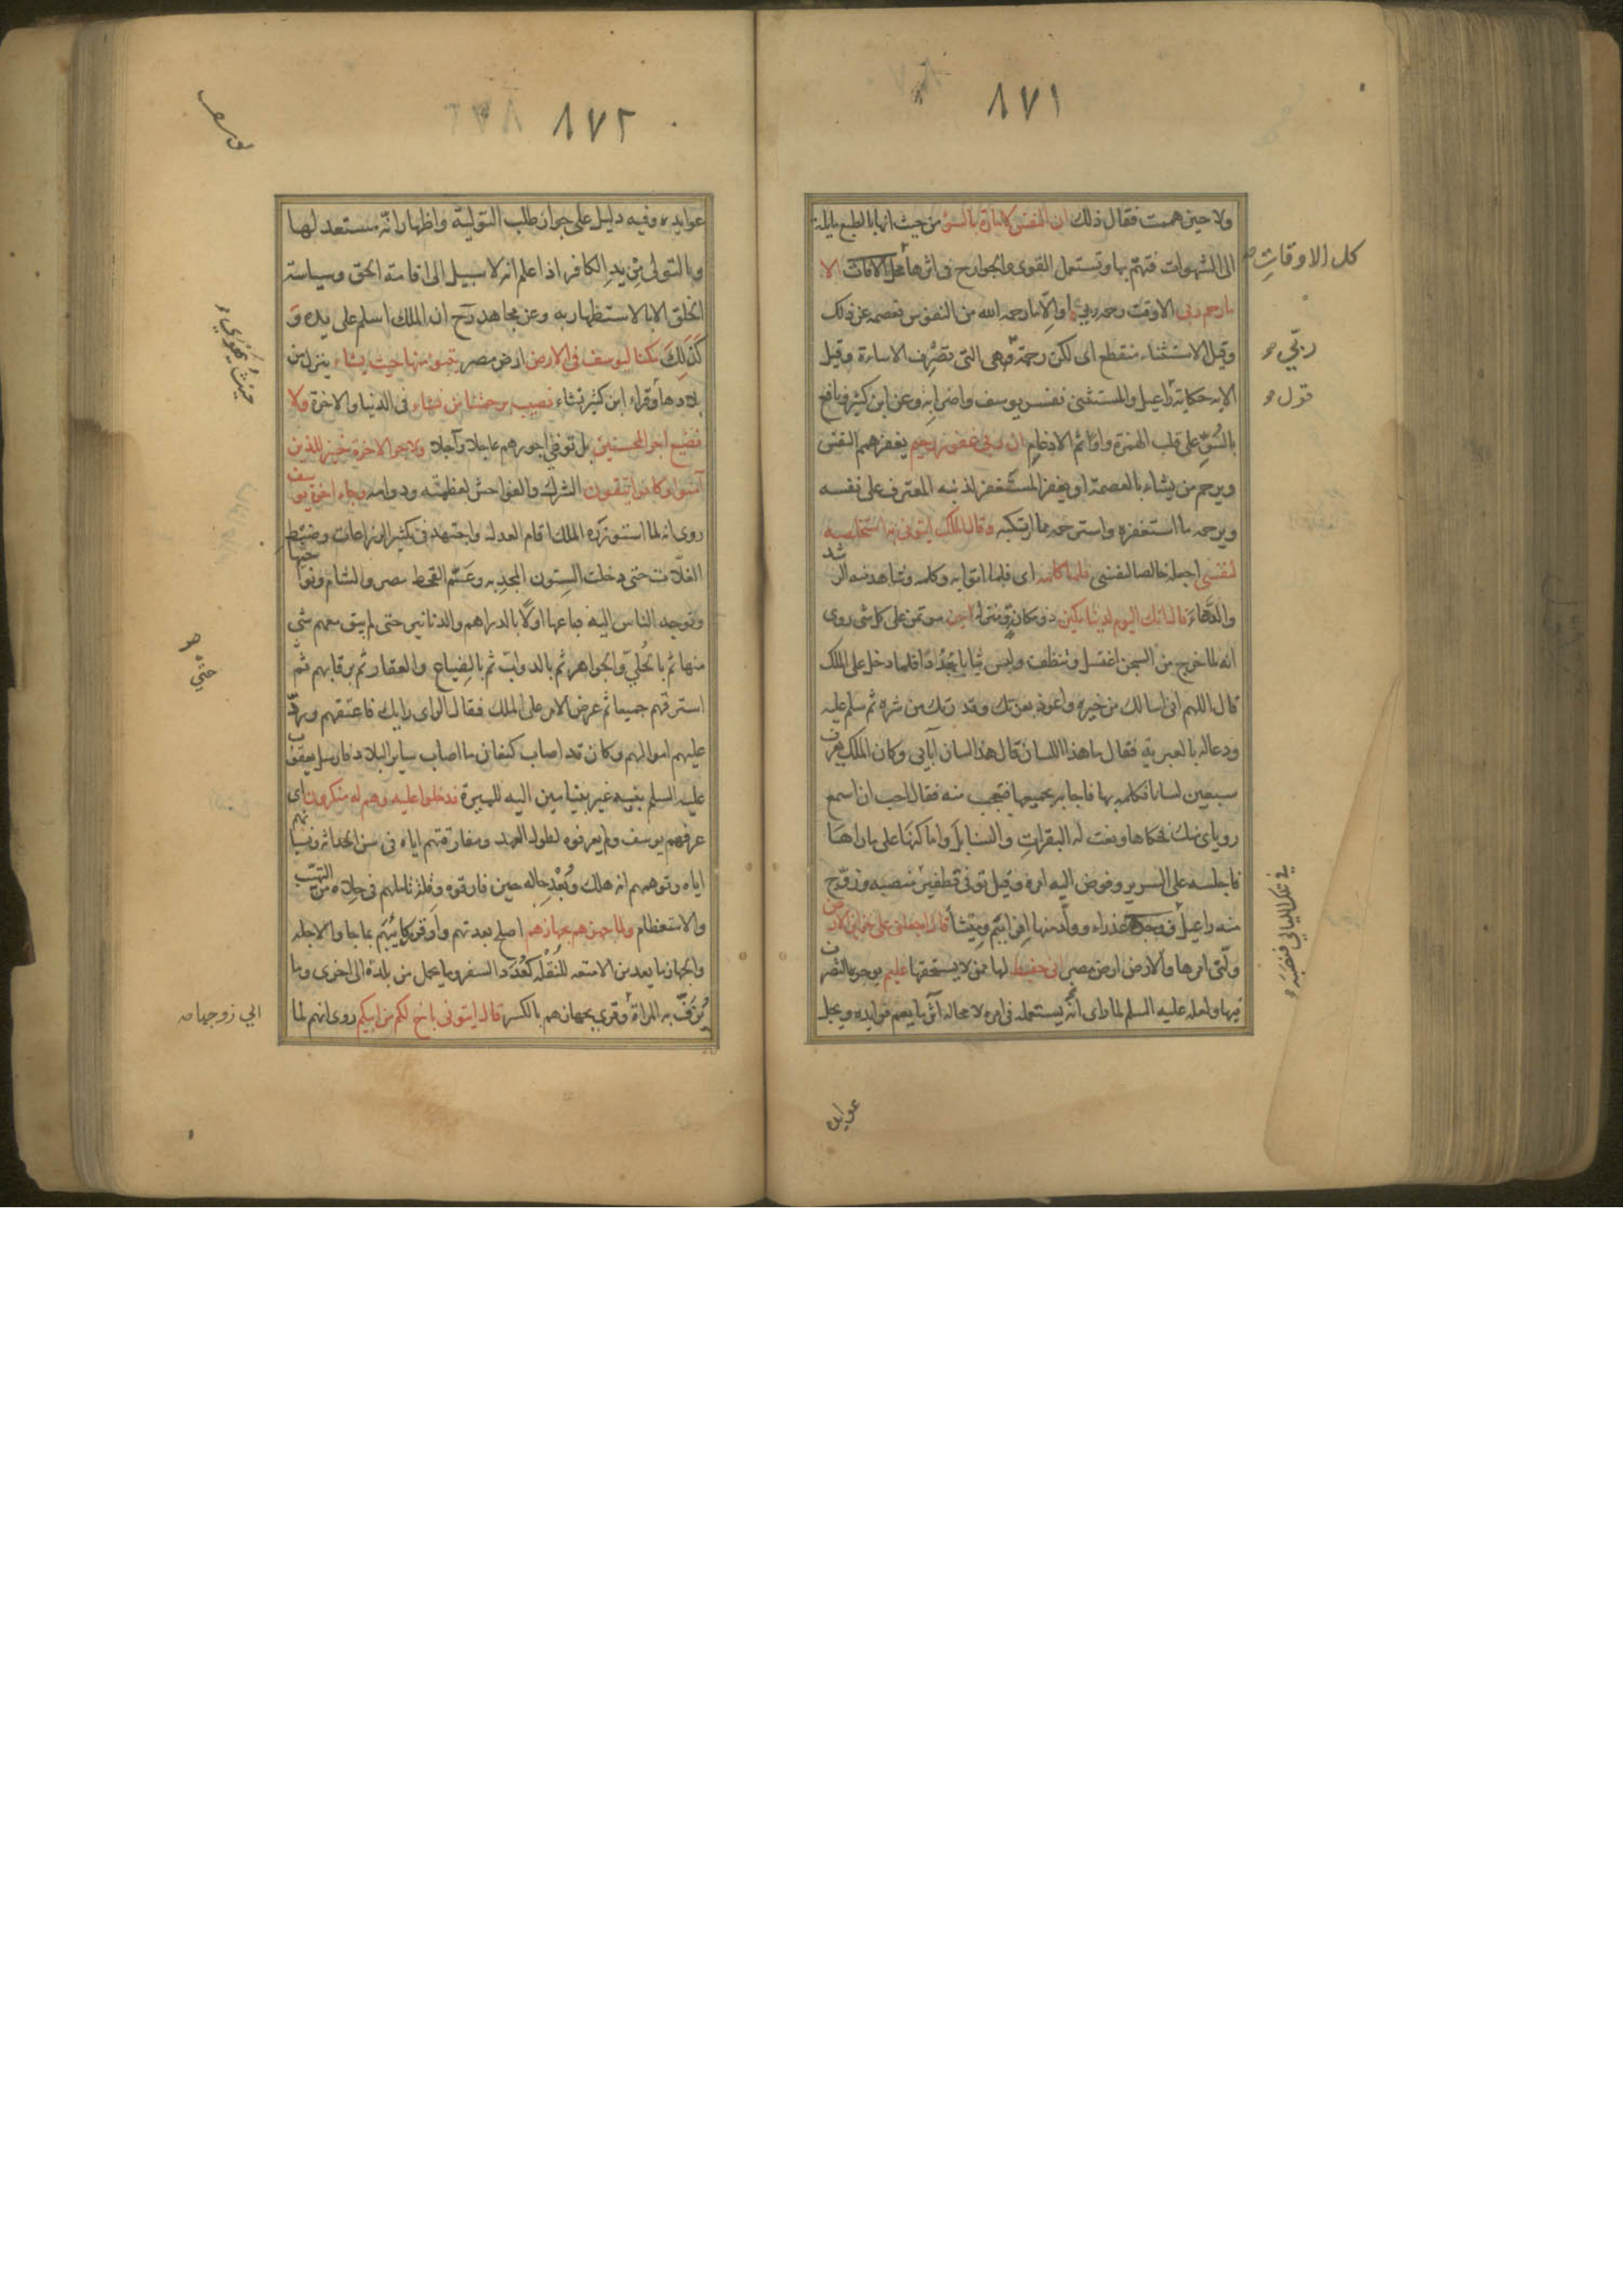 ٨٧١
ولا حين هممت فقال ذلك ان النفس لامارة بالسوء من حيث انها بالطبع مايلة
الى الشهوات فتهم بها وتستعمل القوى والجوارح فى اثرها كل الاوقات الا
ما رحم ربى الا وقت رحمة ربى او الا ما رحمه الله من النفوس فعصمه عن ذلك
وقيل الاستثناء منقطع اى لكن رحمة ربى هى التى تصرف الاساءة وقيل
الاية حكاية راعيل والمستثنى نفس يوسف واضرابه وعن ابن كثير ونافع
بالسوّ على قلب الهمزة واوا ثم الادغام ان ربى غفور رحيم يغفر هم النفس
ويرحم من يشاء بالعصمة او يغفر المستغفر لذنبه المعترف على نفسه
ويرحمه ما استغفره واسترحمه مما ارتكبه وقال الملك ايتونى به استخلصه
لنفسى اجعله خالصا لنفسى فلما كلمه اى فلما اتوا به وكلمه وشاهد منه الرشد
والدهاء قال انك اليوم لدينا مكين ذو مكانة ومنزلة امين موتمن على كل شى روى
انه لما خرج من السجن اغتسل وتنظف ولبس ثيابا جددا فلما دخل على الملك
قال اللهم انى اسالك من خيره واعوذ بعزتك وقدرتك من شره ثم سلم عليه
ودعا له بالعبرية فقال ما هذا اللسان قال هذا لسان آبائى وكان الملك يعرف
سبعين لسانا فكلمه بها فاجابه بجميعها فتعجب منه فقال احب ان اسمع
روياى منك فحكاها ونعت له البقرات والسنابل واماكنها على ما راها
فاجلسه على السرير وفوض اليه امره وقيل توفى قطفير منصبه وزوّج
منه راعيل فوجدها عذراء وولد منها افرائيم وميشا قال اجعلنى على خزائن الارض
ولّنى امرها والارض ارض مصر انى حفيظ لها ممن لا يستحقها عليم بوجوه التصرف
فيها ولعله عليه السلم لما راى انه يستعمله فى امره لا محالة آثر ما يعم فوايده ويجل
كل الاوقاتِ
ربّى
قول
فى تلك الليالى فنصبه
عوايده
٨٧٢
عوايده وفيه دليل على جواز طلب التولية واظهار انه مستعد لها
وبالتولى من يد الكافر اذا علم انه لا سبيل الى اقامته الحق وسياسة
الخلق الا بالاستظهار به وعن مجاهد رح ان الملك اسلم على يده وَ
كَذلِكَ مكنا ليوسف فى الارض ارض مصر يتبوء منها حيث يشاء ينزل من
بلادها وقراء ابن كثير نشاء نصيب برحمتنا من نشاء فى الدنيا والاخرة ولا
نضيع اجر المحسنين بل نوفى اجورهم عاجلا وآجلا ولاجر الاخرة خير للذين
آمنوا وكانوا يتقون الشرك والفواحش لعظمته ودوامه وجاء اخوة يوسف
روى انه لما استوزره الملك اقام العدل واجتهد فى تكثير الزراعات وضبط
الغلات حتى دخلت السنون المجدبة وعمّ القحط مصر والشام ونواحيها
وتوجه الناس اليه فباعها اوّلا بالدراهم والدنانير حتى لم يبق معهم شى
منها ثم بالحلى والجواهر ثم بالدواب ثم بالضياع والعقار ثم برقابهم ثم
استرقهم جميعا ثم عرض الامر على الملك فقال الراى رايك فاعتقهم وردّ
عليهم اموالهم وكان قد اصاب كنعان ما اصاب ساير البلاد فارسل يعقوب
عليه السلم بنيه غير بنيامين اليه للميرة فدخلوا عليه وهم له منكرون اى
عرفهم يوسف ولم يعرفوه لطول العهد ومفارقتهم اياه فى سن الحداثة ونسيانهم
اياه وتوهمهم انه هلك وبُعْد حاله حين فارقوه وقلة تاملهم فى حلاه من التهيب
والاستعظام ولما جهزهم بجهازهم اصلح بعدتهم وأوقر ركايبهم بما جاوا لاجله
والجهاز ما يعد من الامتعة للنقلة كعُدَد السفر وما يحمل من بلدة الى اخرى وما
تُزَفّ به المراة وقرى بجهازهم بالكسر قال ايتونى باخ لكم من ابيكم روى انهم لما
حيث يهوى
حتى
الى زوجها